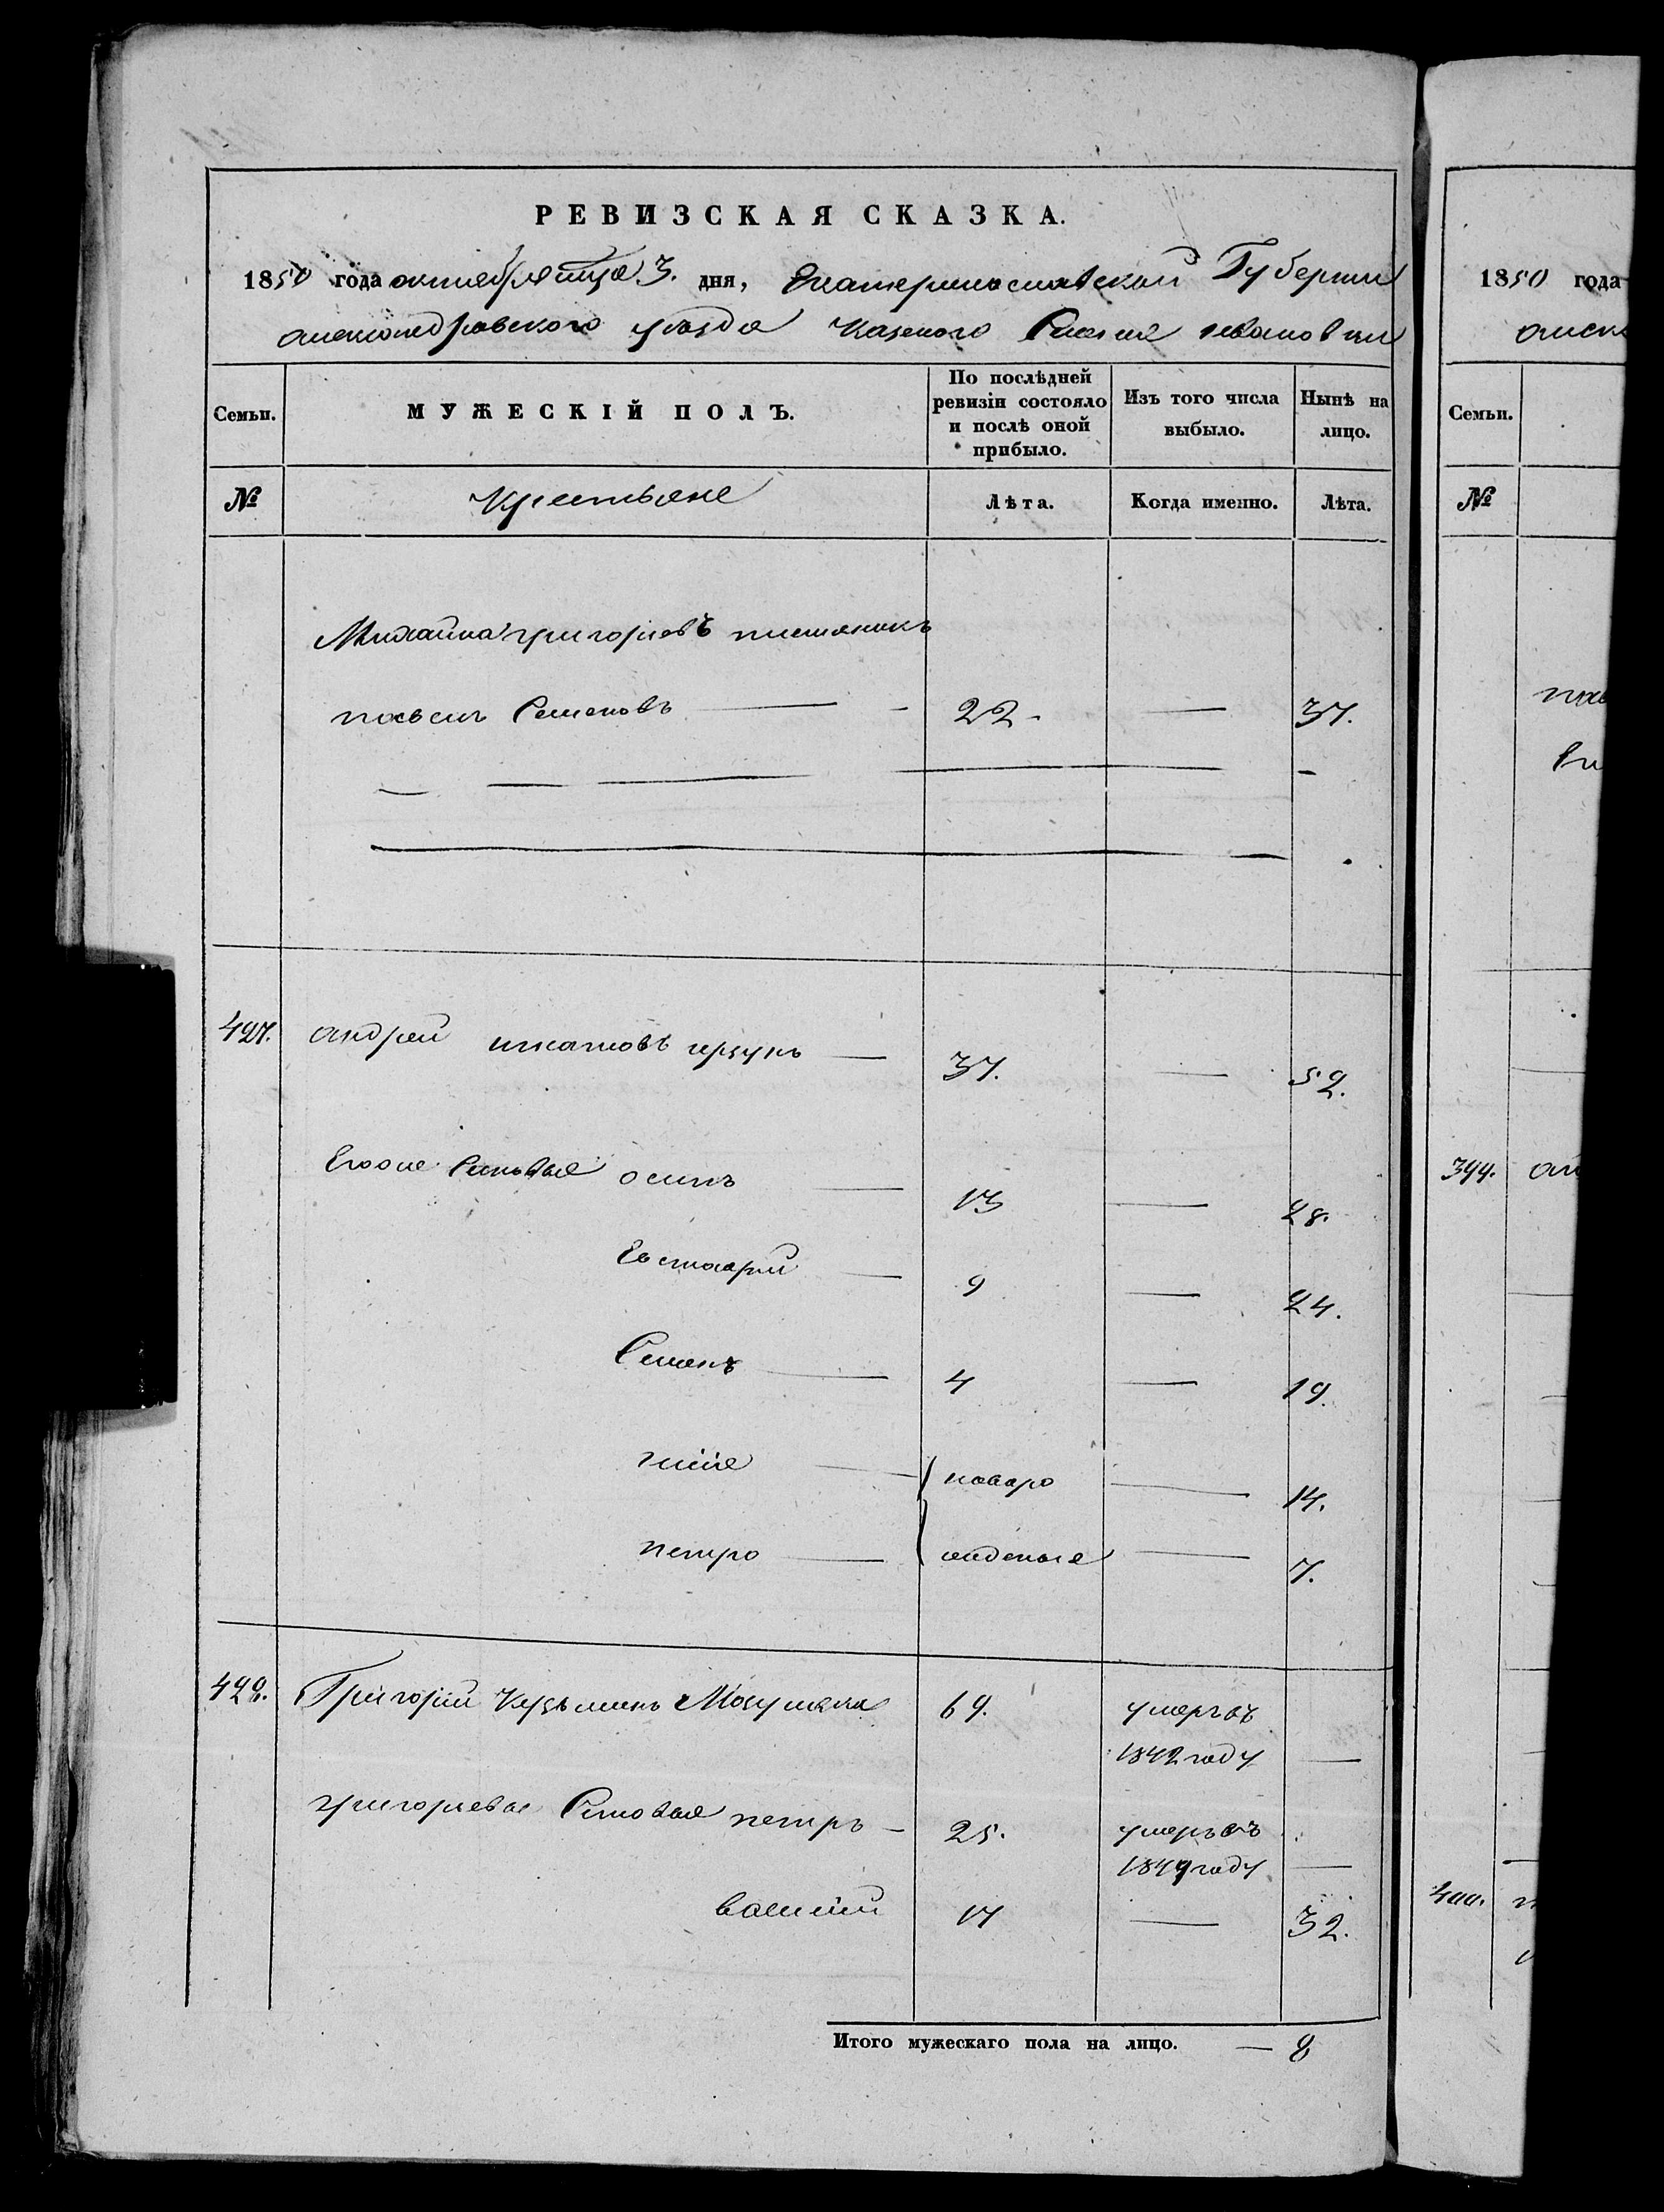 РЕВИЗСКАЯ СКАЗКА.
1850 года октября мца 3. дня, Екатеринославской Губернии
александровского уезда Казеного Селения ивановки
Семьи.
МУЖЕСКІЙ ПОЛЪ.
По послѣдней ревизіи состояло и послѣ оной прибыло.
Изъ того числа выбыло.
Нынѣ на лицо.
№
Крестьяне
Лѣта.
Когда именно.
Лѣта.
Михайла григорьевъ племяникъ
павелъ Семеновъ — 22. — 37.
427. андрей игнатовъ — 37. — 52.
Егоже Сыновья осипъ — 13 — 28.
Евстафий — 9 — 24.
Семенъ — 4 — 19.
илія — новоро — 14.
петро — жденые — 7.
428. Григорий Кузьминъ 69. умеръ въ
1842 году —
григорьевы Сыновья петръ — 25. умеръ въ
1849 году —
василий 17 — 32.
Итого мужескаго пола на лицо. — 8
1850 года
Семьи.
№
399.
400.